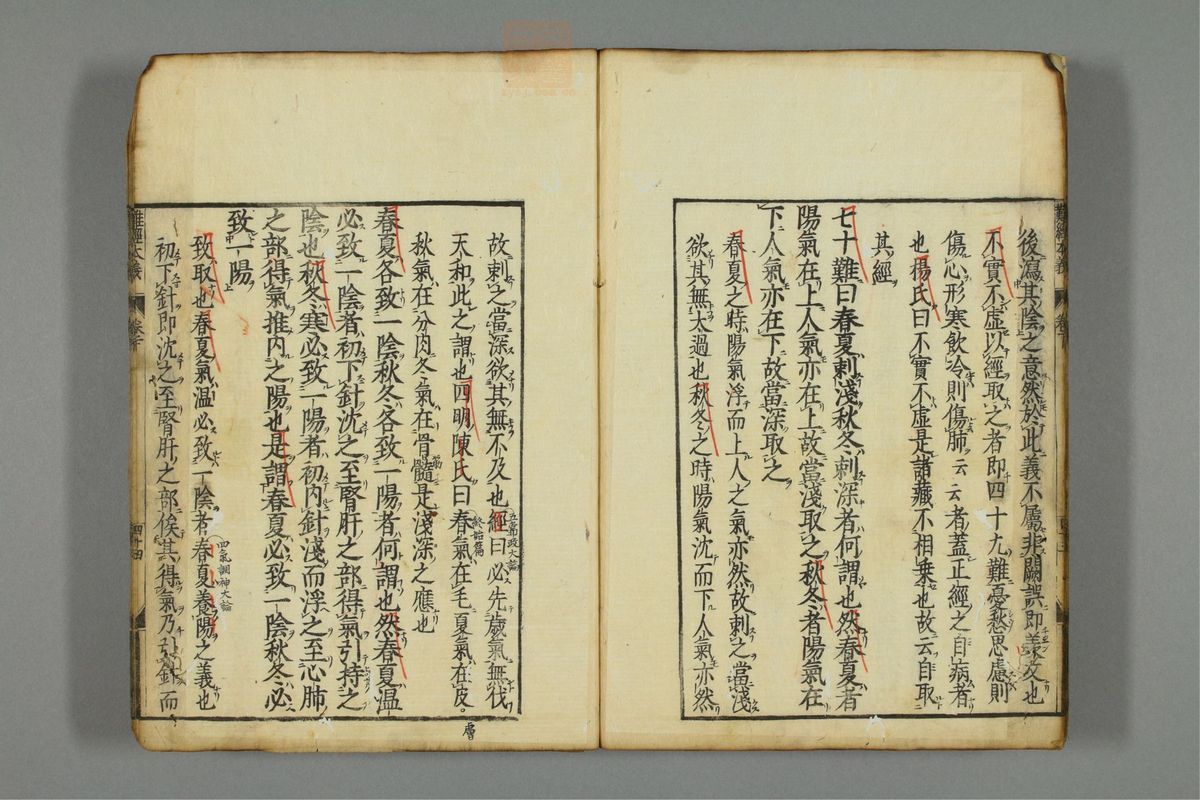 後瀉其陰之意然於此義不屬非闕誤即羨文也
不實不虛以經取之者即四十九難憂愁思慮則
傷心形寒飲冷則傷肺云云者蓋正經之自病者
也楊氏曰不實不虛是諸藏不相乗也故云自取
其經
七十難曰春夏刺淺秋冬刺深者何謂也然春夏者
陽氣在上人氣亦在上故當淺取之秋冬者陽氣在
下人氣亦在下故當深取之
春夏之時陽氣浮而上人之氣亦然故刺之當淺
欲其無太過也秋冬之時陽氣沈而下人氣亦然
故刺之當深欲其無不及也經曰必先歲氣無伐
五常政大論
天和此之謂也四明陳氏曰春氣在毛夏氣在皮
終始篇
秋氣在分肉冬氣在骨髓是淺深之應也
筋
春夏各致一陰秋冬各致一陽者何謂也然春夏温
必致一陰者初下針沈之至腎肝之部得氣引持之
陰也秋冬寒必致一陽者初内針淺而浮之至心肺
之部得氣推内之陽也是謂春夏必致一陰秋冬必
致一陽
致取也春夏氣温必致一陰者春夏養陽之義也
四氣調神大論
初下針即沈之至腎肝之部俟其得氣乃引針而
難經本義
四十四